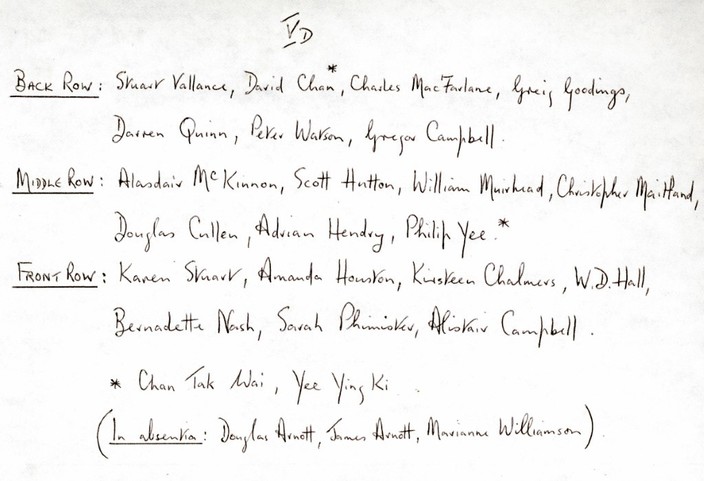 VD
BACK ROW: Stuart Vallance, David Chan*, Charles MacFarlane, Greig Goodings,
Darren Quinn, Peter Watson, Gregor Campbell.
MIDDLE ROW: Alasdair McKinnon, Scott Hutton, William Muirhead, Christopher Maitland,
Douglas Cullen, Adrian Hendry, Philip Yee.*
FRONT ROW: Karen Stuart, Amanda Houston, Kirsteen Chalmers, W.D. Hall,
Bernadette Nash, Sarah Phimister, Alistair Campbell.
* Chan Tak Wai, Yee Ying Ki.
(In absentia: Douglas Arnott, James Arnott, Marianne Williamson).